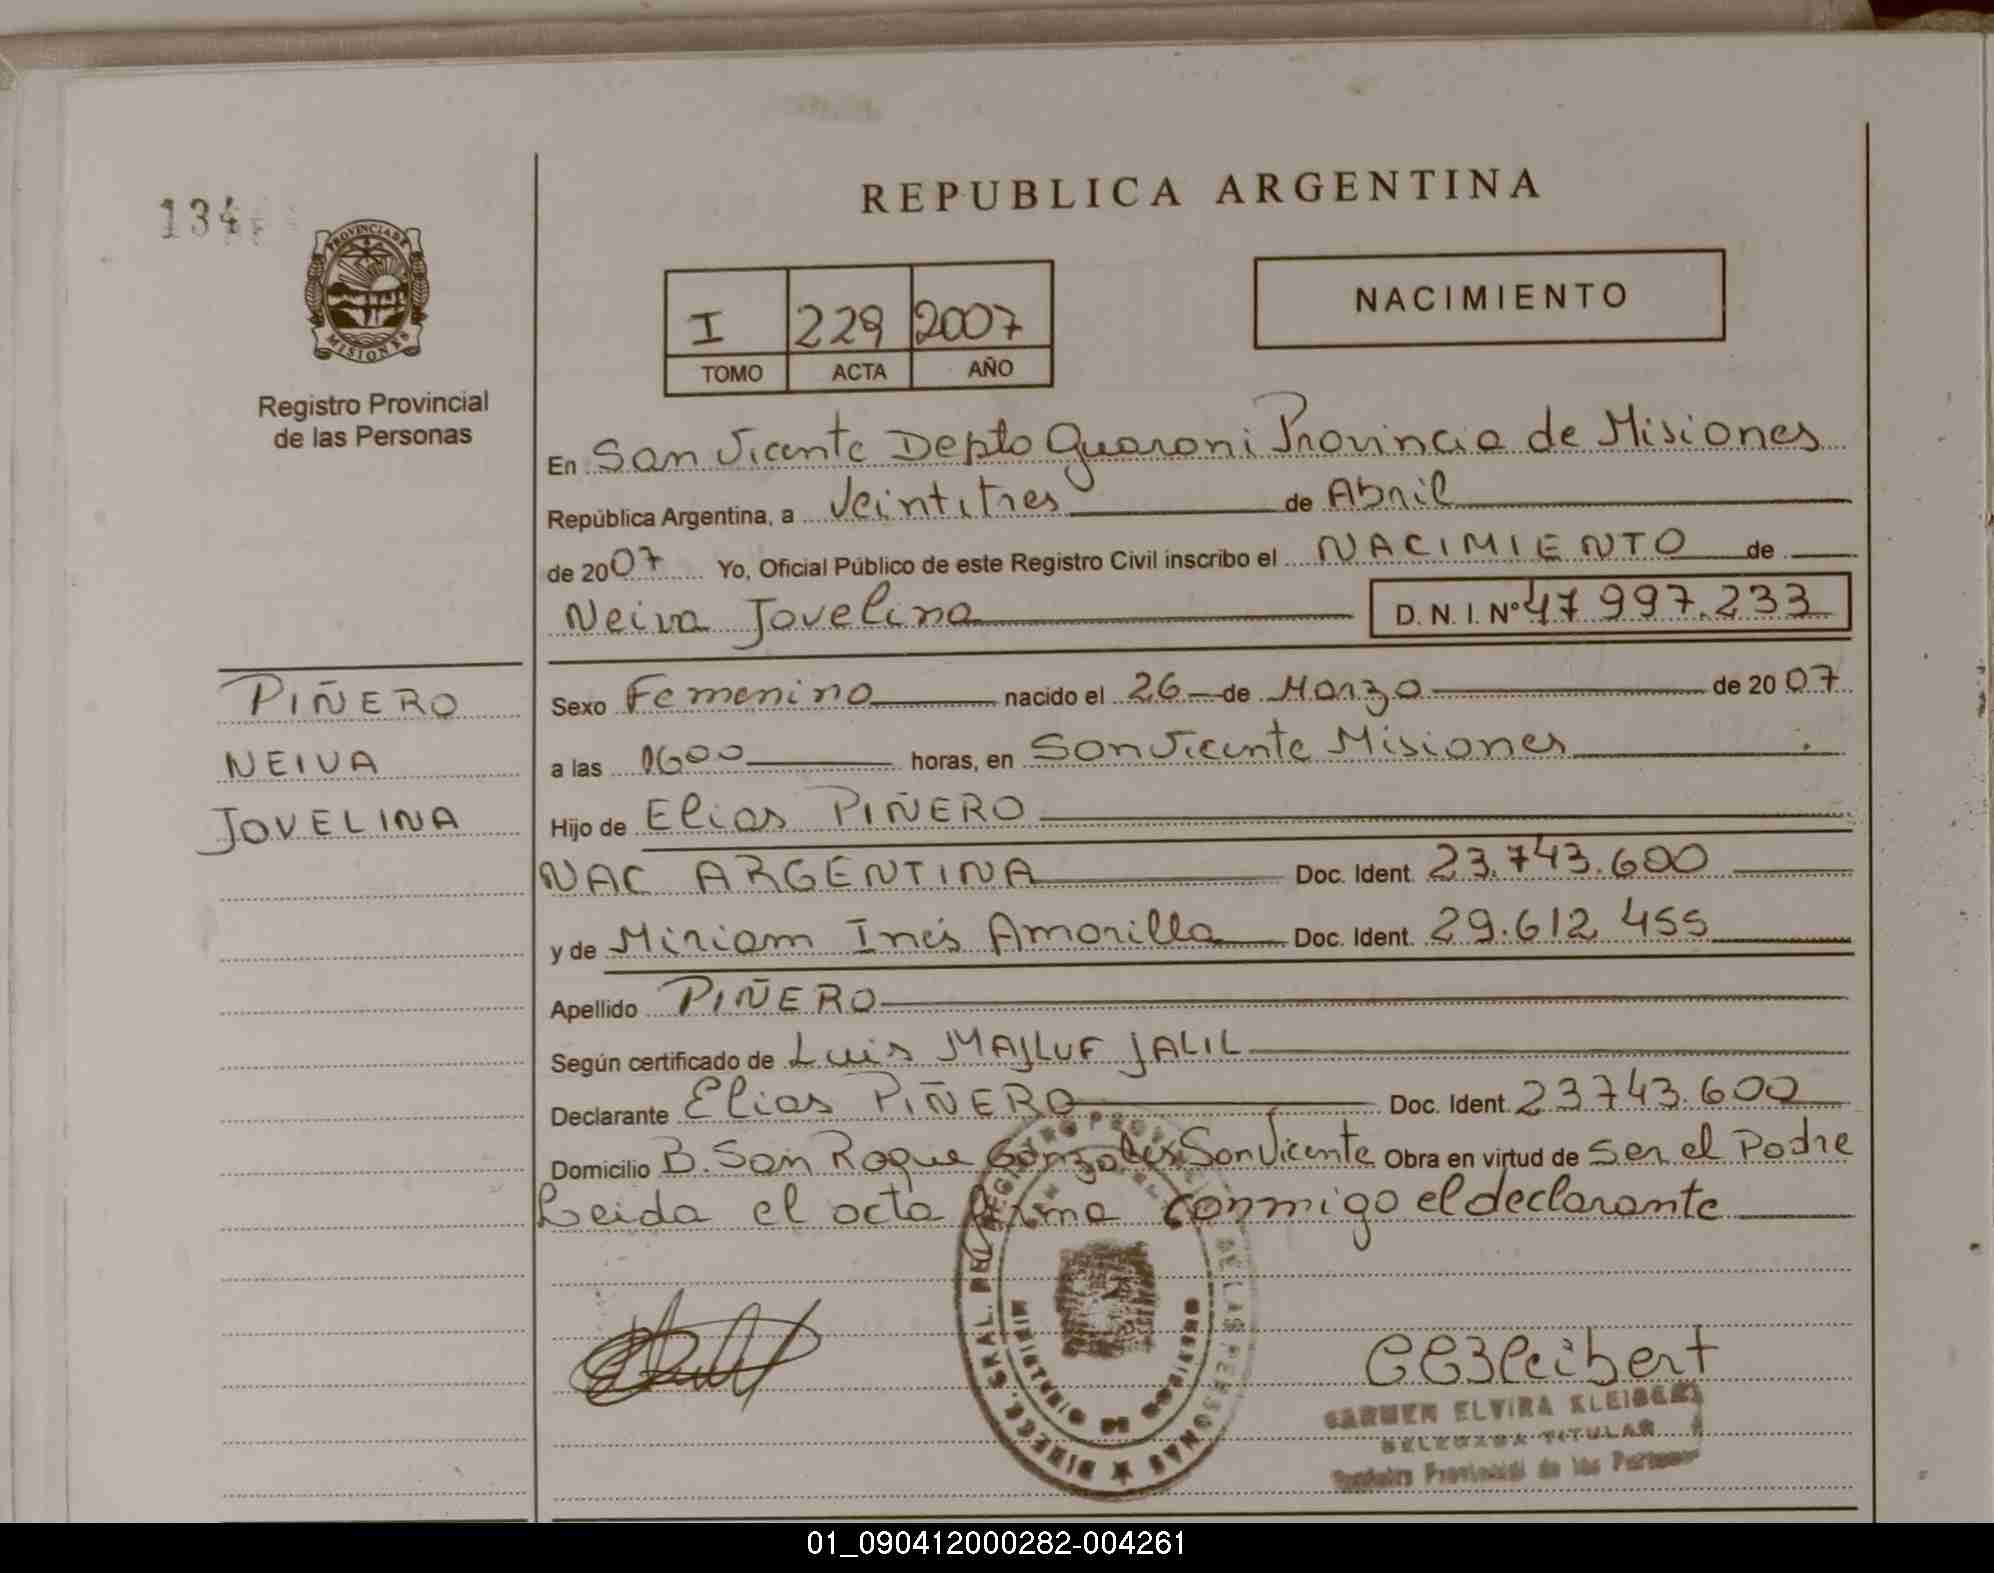 134
PROVINCIA DE
MISIONES
Registro Provincial
de las Personas
REPUBLICA ARGENTINA
I 229 2007
TOMO ACTA AÑO
NACIMIENTO
En San Vicente Depto Guarani Provincia de Misiones
República Argentina, a Veintitres de Abril
de 2007 Yo, Oficial Público de este Registro Civil inscribo el NACIMIENTO de
Neiva Jovelina D.N.I. Nº 47 997.233
PIÑERO
NEIVA
JOVELINA
Sexo Femenino nacido el 26 de Marzo de 2007
a las 0600 horas, en San Vicente Misiones
Hijo de Elias PIÑERO
NAC ARGENTINA Doc. Ident. 23.743.600
y de Miriam Inés Amarilla Doc. Ident. 29.612 455
Apellido PIÑERO
Según certificado de Luis MAJLUF JALIL
Declarante Elias PIÑERO Doc. Ident. 23743.600
Domicilio B. San Roque Gonzales San Vicente Obra en virtud de Ser el Padre
Leida el acta firma conmigo el declarante
DIREC. GRAL. DEL REGISTRO PROVINCIAL DE LAS PERSONAS
CEKleibert
CARMEN ELVIRA KLEIBERT
DELEGADA TITULAR
Registro Provincial de las Personas
01_090412000282-004261